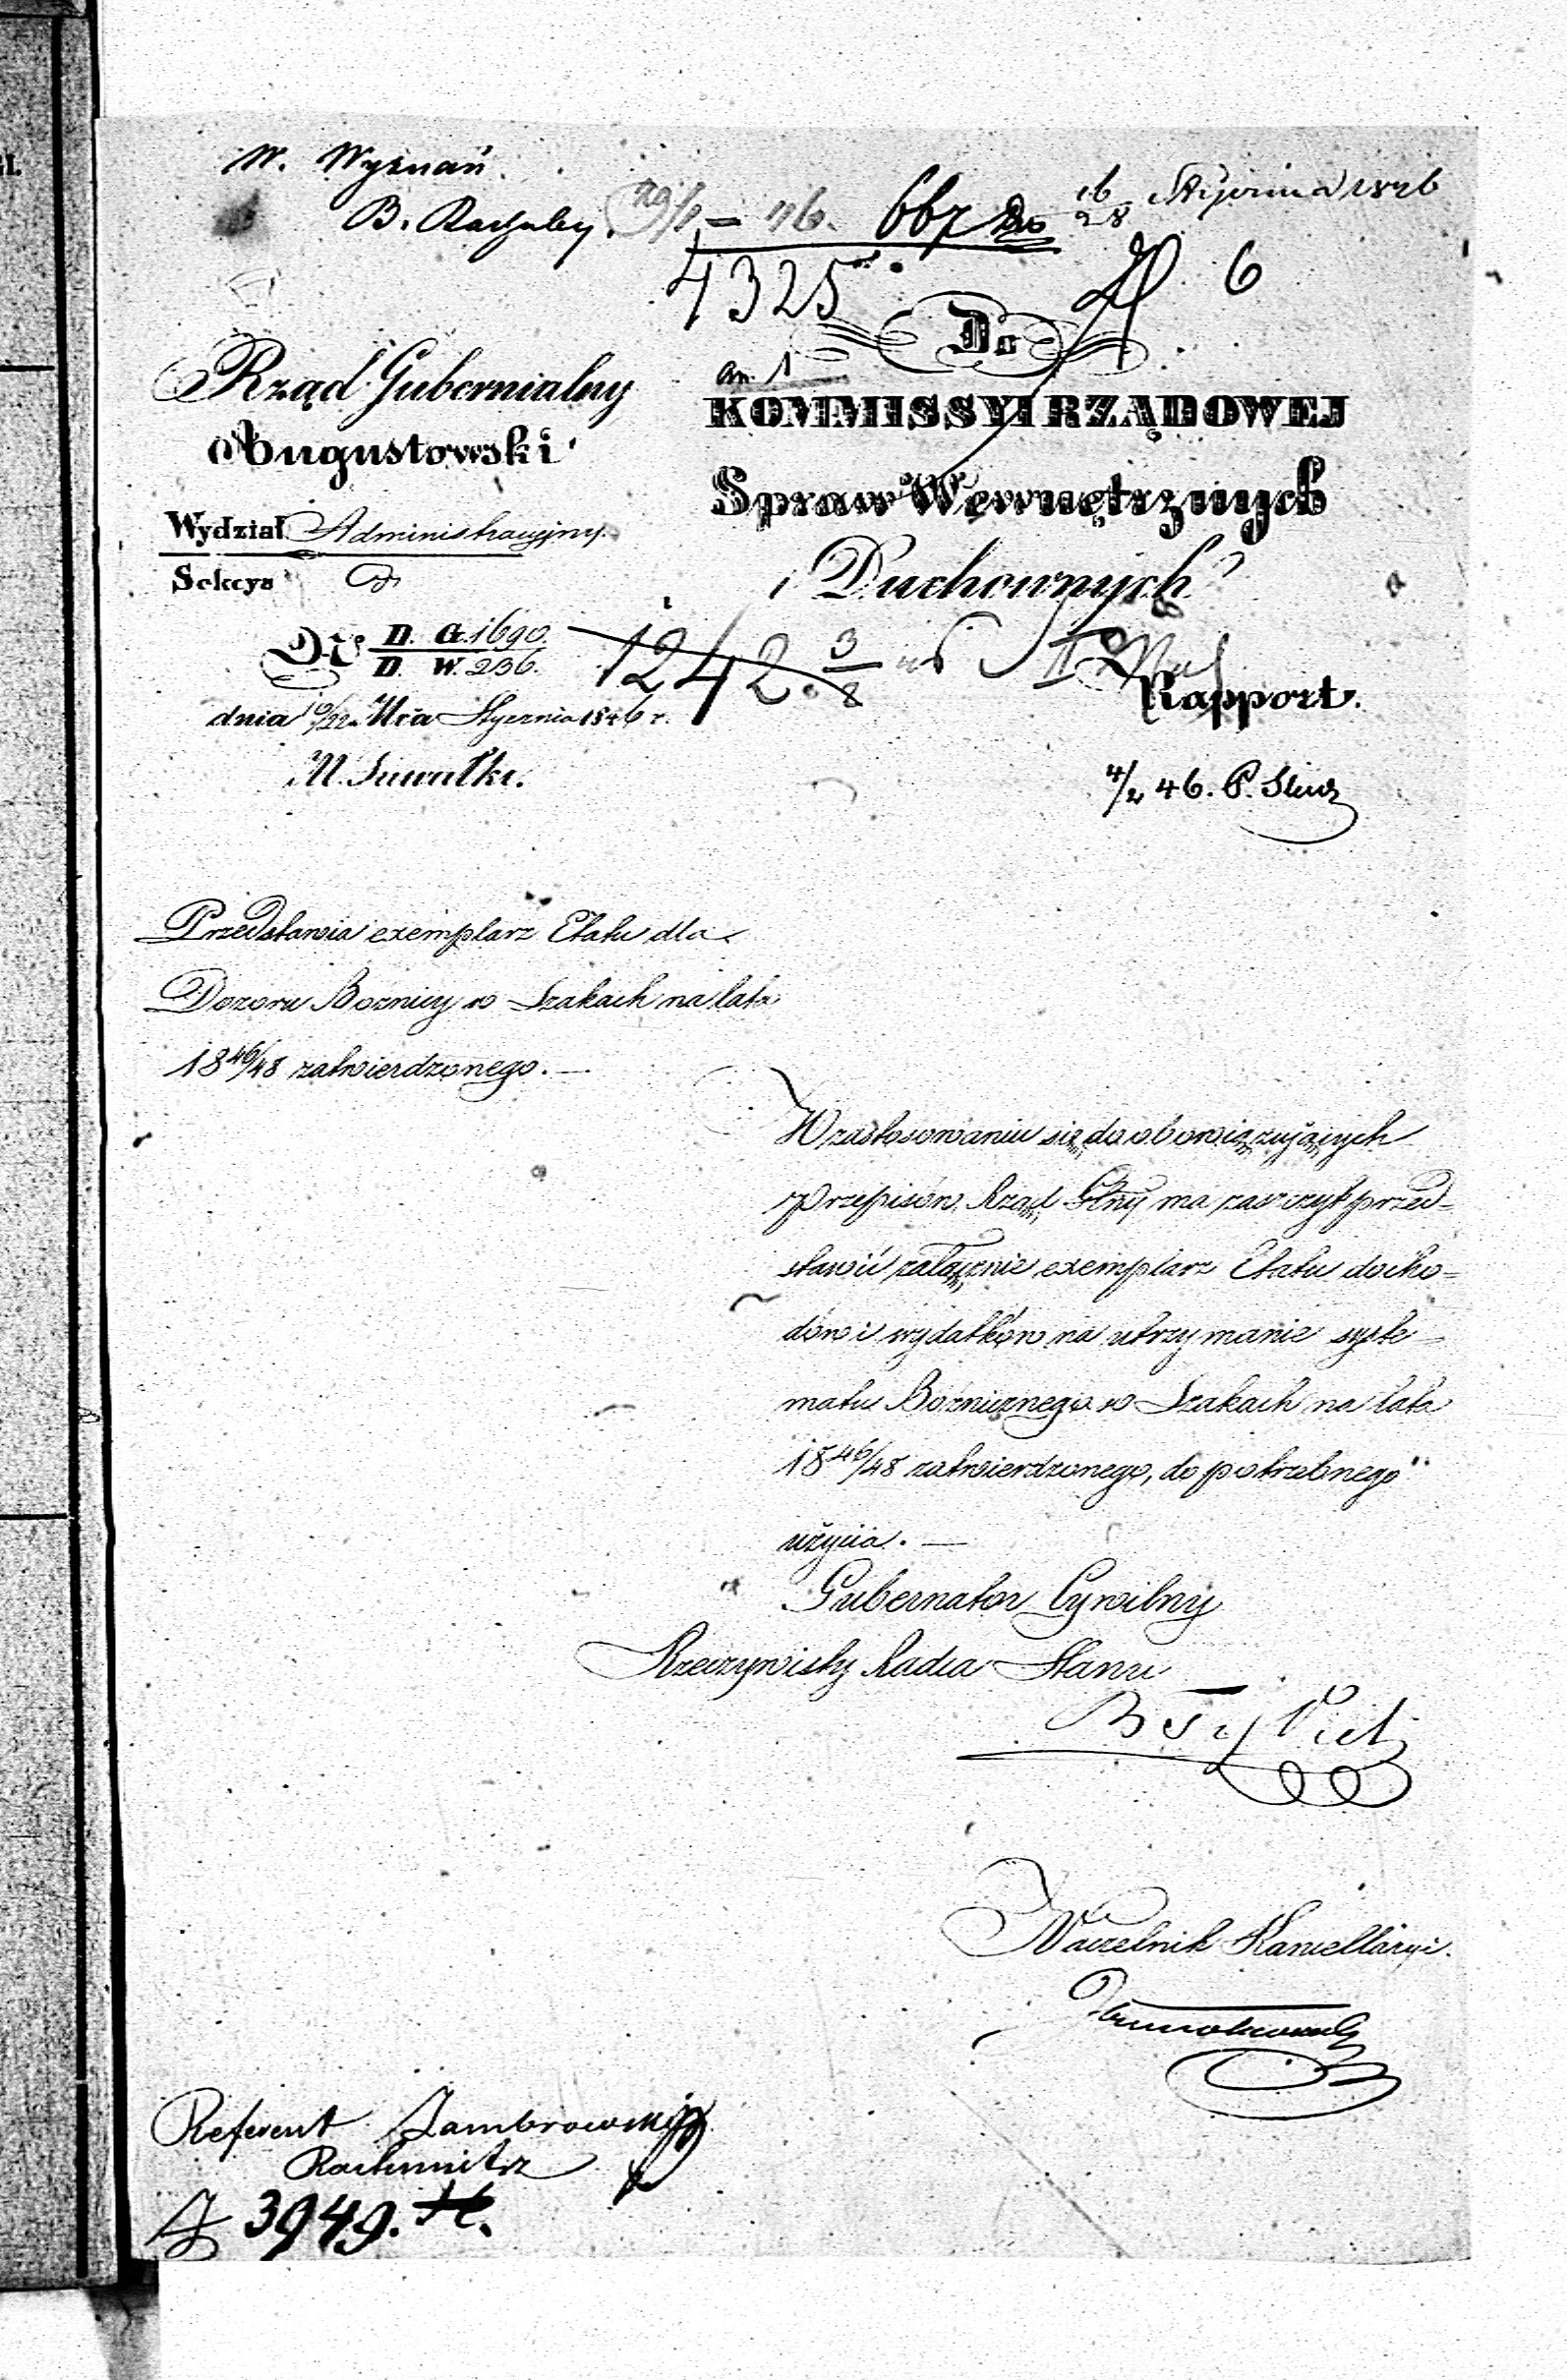 W. Wyznań.
B. Rachuby.
29/1 – 46. 667
16/28 Stycznia 1846
4325
6
Do
an. 1
Rząd Gubernialny
Augustowski
KOMMISSYI RZĄDOWEJ
Spraw Wewnętrznych
i Duchownych
Wydział Administracyjny.
Sekcya
№ D. G. 1690.
D. W. 236.
1242. 3/8
Rapport.
dnia 10/22 M-ca Stycznia 1846 r.
M. Suwałki.
4/2 46. P.
Przedstawia exemplarz Etatu dla
Dozoru Boznicy w Szakach na lata
1846/48 zatwierdzonego. —
W zastosowaniu się do obowiązujących
przepisów, Rząd Glny ma zaszczyt przed=
stawić załącznie exemplarz Etatu docho=
dów i wydatków na utrzymanie syste–
matu Bożnicznego w Szakach na lata
1846/48 zatwierdzonego, do potrzebnego
użycia. —
Gubernator Cywilny
Rzeczywisty Radca Stanu
Naczelnik Kancellaryi.
Referent Zambrowski
Rachmistrz
3949.